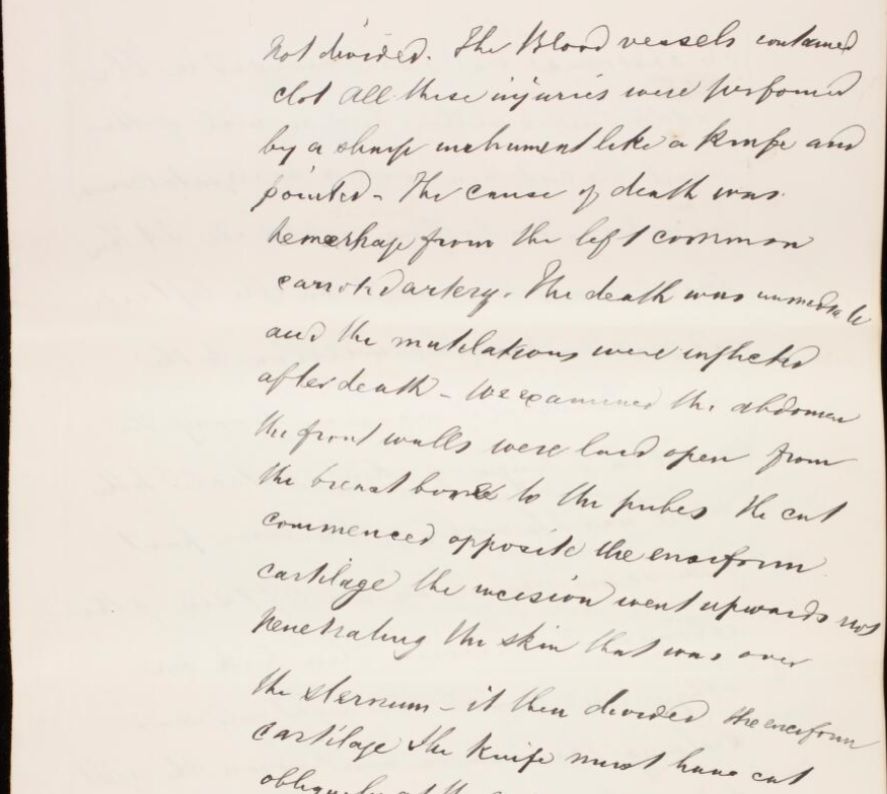 not divided. The Blood vessels contained
clot All these injuries were performed
by a sharp instrument like a knife and
pointed - The cause of death was
hemorrhage from the left common
carrotid artery. The death was immediate
and the mutilations were inflicted
after death - We examined the abdomen
the front walls were laid open from
the breast bone to the pubes the cut
commenced opposite the ensiform
cartilage the incision went upwards not
penetrating the skin that was over
the sternum - it then divided the ensiform
cartilage the knife must have cut
obliquely at the